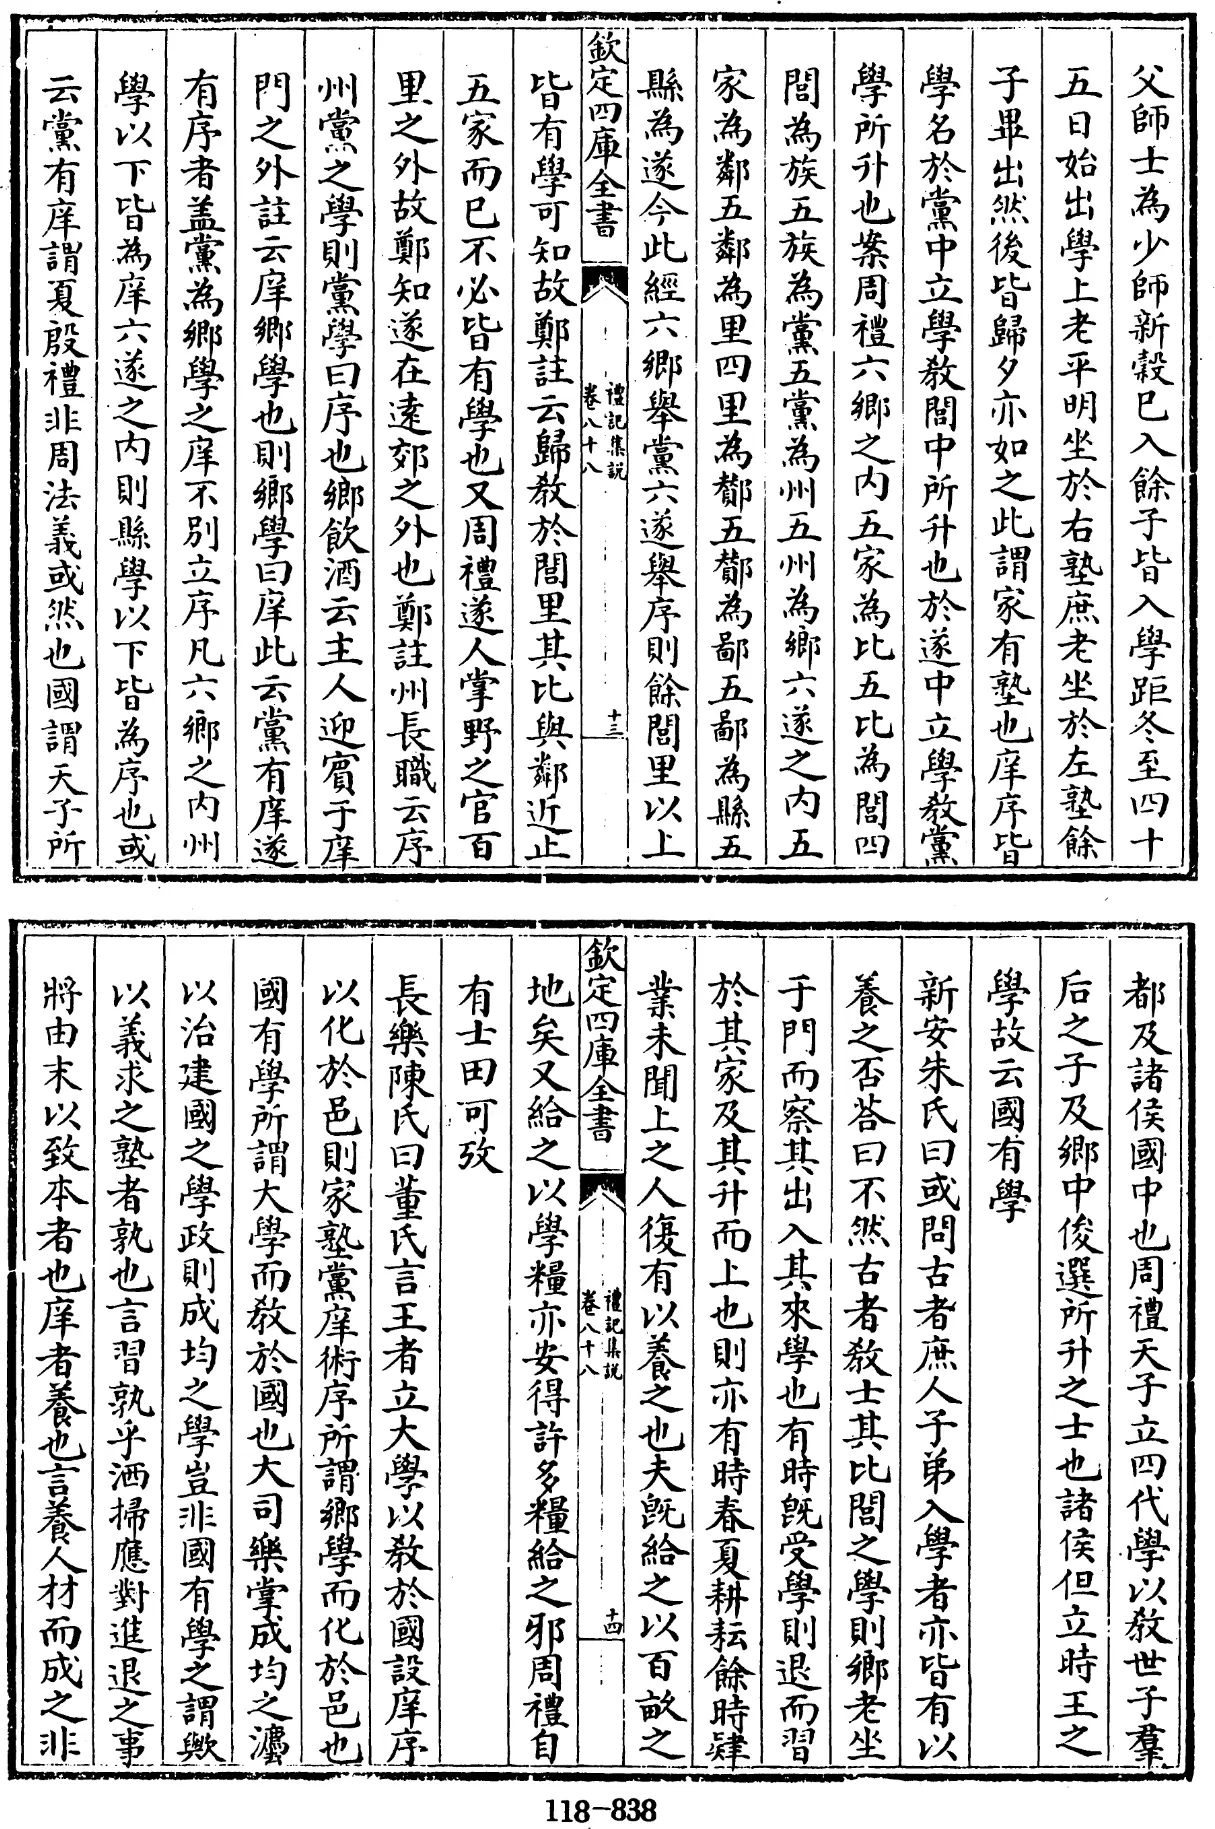 父師士為少師新穀已入餘子皆入學距冬至四十
五日始出學上老平明坐於右塾庶老坐於左塾餘
子畢出然後皆歸夕亦如之此謂家有塾也庠序皆
學名於黨中立學教閭中所升也於遂中立學教黨
學所升也案周禮六鄉之内五家為比五比為閭四
閭為族五族為黨五黨為州五州為鄉六遂之内五
家為鄰五鄰為里四里為酇五酇為鄙五鄙為縣五
縣為遂今此經六鄉舉黨六遂舉序則餘閭里以上
欽定四庫全書
禮記集説
卷八十八
十三
皆有學可知故鄭註云歸教於閭里其比與鄰近止
五家而已不必皆有學也又周禮遂人掌野之官百
里之外故鄭知遂在遠郊之外也鄭註州長職云序
州黨之學則黨學曰序也鄉飲酒云主人迎賔于庠
門之外註云庠鄉學也則鄉學曰庠此云黨有庠遂
有序者盖黨為鄉學之庠不别立序凡六鄉之内州
學以下皆為庠六遂之内則縣學以下皆為序也或
云黨有庠謂夏殷禮非周法義或然也國謂天子所
都及諸侯國中也周禮天子立四代學以教世子羣
后之子及鄉中俊選所升之士也諸侯但立時王之
學故云國有學
新安朱氏曰或問古者庶人子弟入學者亦皆有以
養之否荅曰不然古者教士其比閭之學則鄉老坐
于門而察其出入其來學也有時旣受學則退而習
於其家及其升而上也則亦有時春夏耕耘餘時肄
業未聞上之人復有以養之也夫旣給之以百畝之
欽定四庫全書
禮記集説
卷八十八
十四
地矣又給之以學糧亦安得許多糧給之邪周禮自
有士田可攷
長樂陳氏曰董氏言王者立大學以教於國設庠序
以化於邑則家塾黨庠術序所謂鄉學而化於邑也
國有學所謂大學而教於國也大司樂掌成均之灋
以治建國之學政則成均之學豈非國有學之謂歟
以義求之塾者孰也言習孰乎洒掃應對進退之事
將由末以致本者也庠者養也言養人材而成之非
118-838